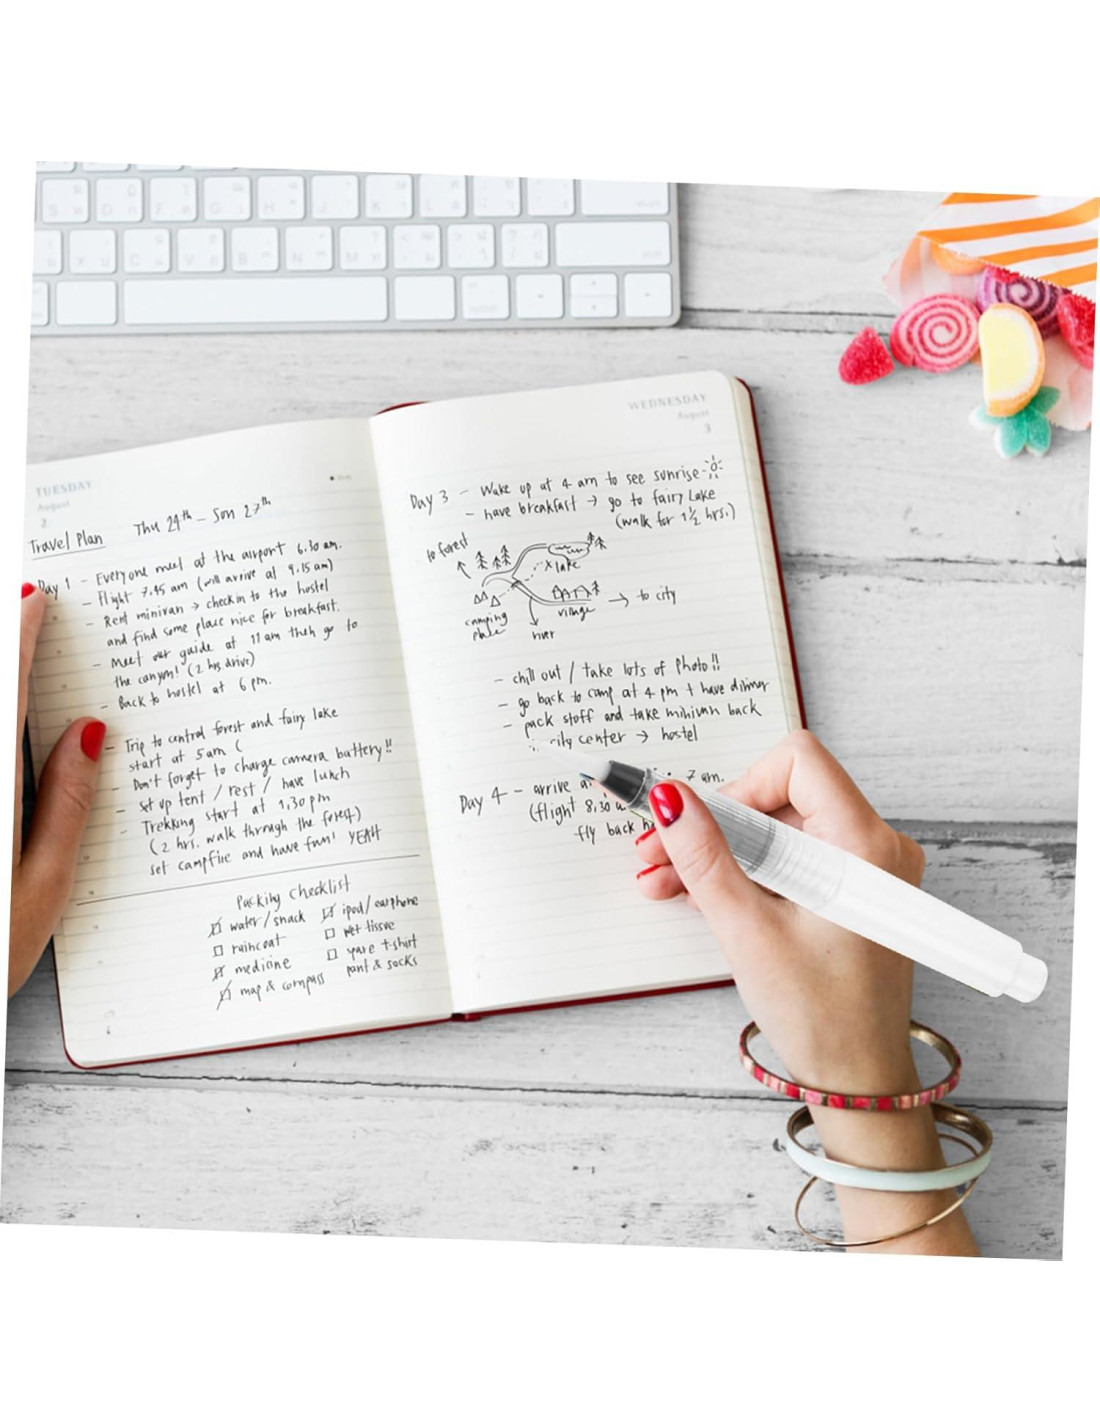 TUESDAY
August
2
Travel Plan Thu 24th - Sun 27th
Day 1 - Everyone meet at the airport 6.30 am.
- Flight 7.45 am (will arrive at 9.15 am)
- Rent minivan → check in to the hostel
and find some place nice for breakfast.
- Meet our guide at 11 am then go to
the canyon! (2 hrs drive)
- Back to hostel at 6 pm.
- Trip to central forest and fairy lake
start at 5 am (
- Don't forget to charge camera battery!!
- set up tent / rest / have lunch
- Trekking start at 1.30 pm
(2 hrs. walk through the forest)
set campfire and have fun! YEAH
Packing Checklist
water/snack
raincoat
medicine
map & compass
ipod/earphone
wet tissue
spare t-shirt
pant & socks
WEDNESDAY
August
3
Day 3 - Wake up at 4 am to see sunrise
- have breakfast → go to fairy Lake
(walk for 1½ hrs.)
to forest
X lake
camping
place
village
river
→ to city
- chill out / take lots of photo!!
- go back to camp at 4 pm + have dinner
- pack stuff and take minivan back
city center → hostel
Day 4 - arrive 7 am.
(flight 8.30
fly back